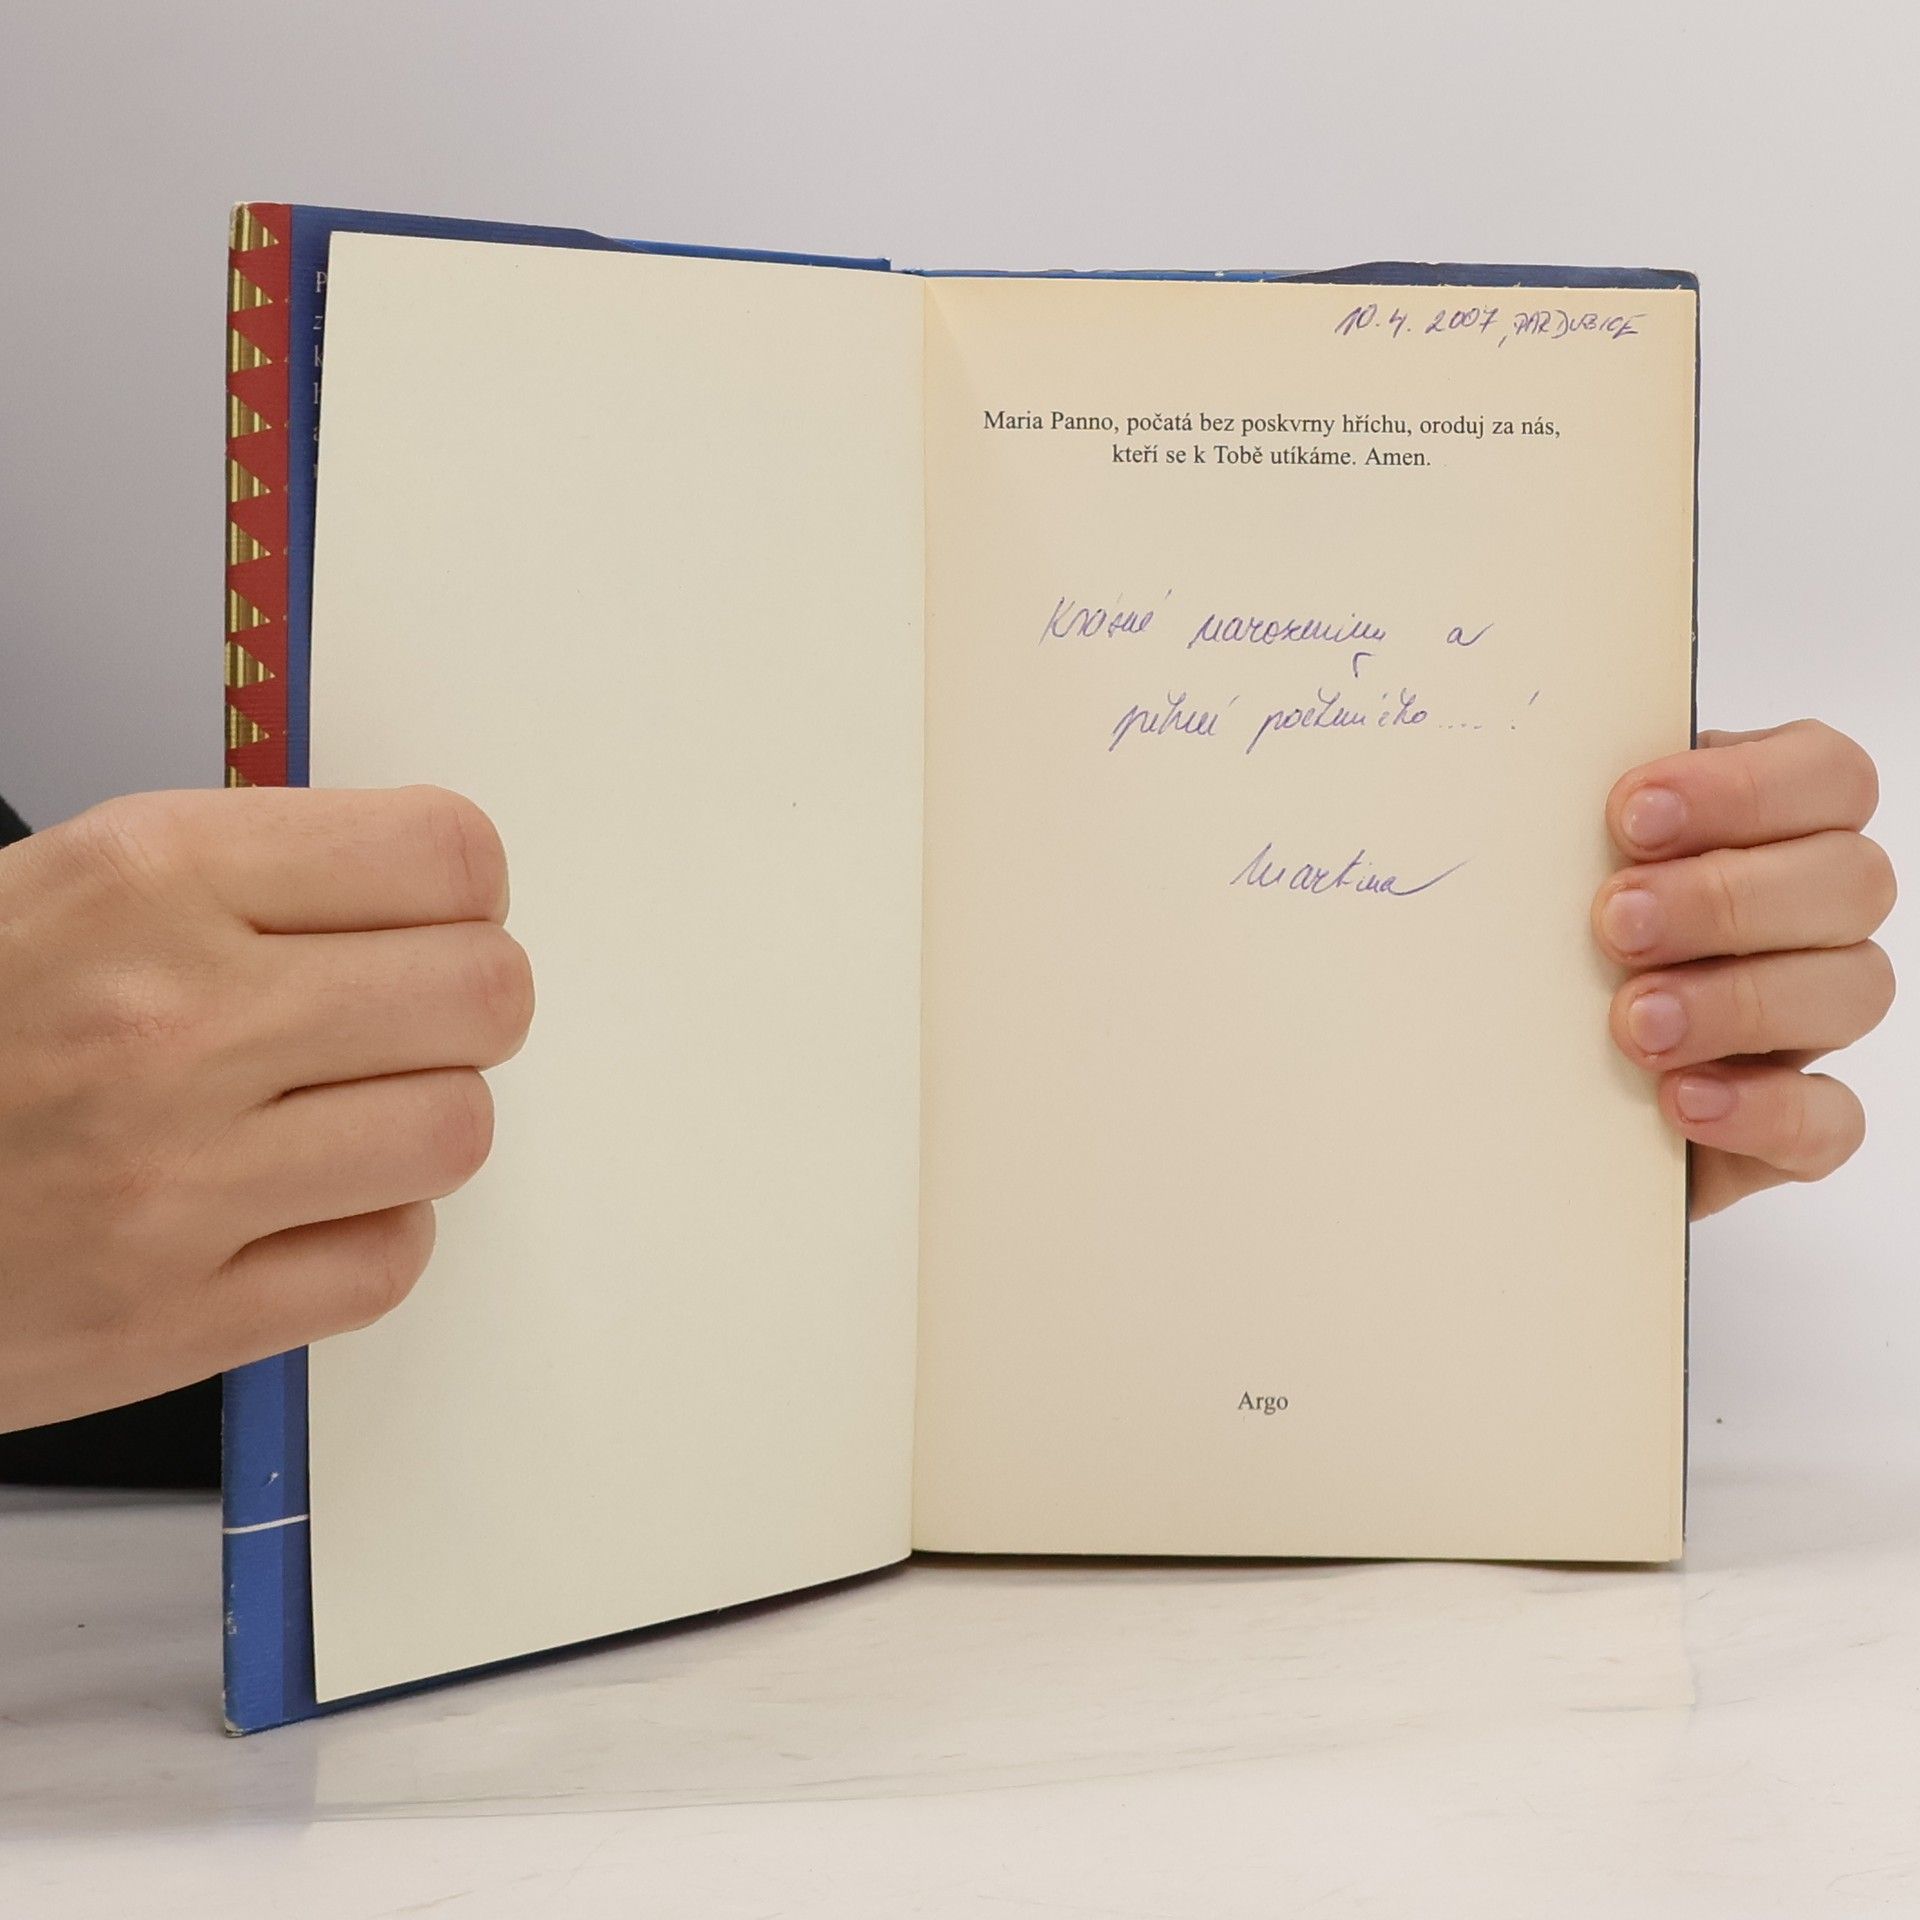 10.4. 2007, PARDUBICE
Maria Panno, počatá bez poskvrny hříchu, oroduj za nás,
kteří se k Tobě utíkáme. Amen.
Krásné narozeniny a
pěkné počteníčko....!
Martina
Argo